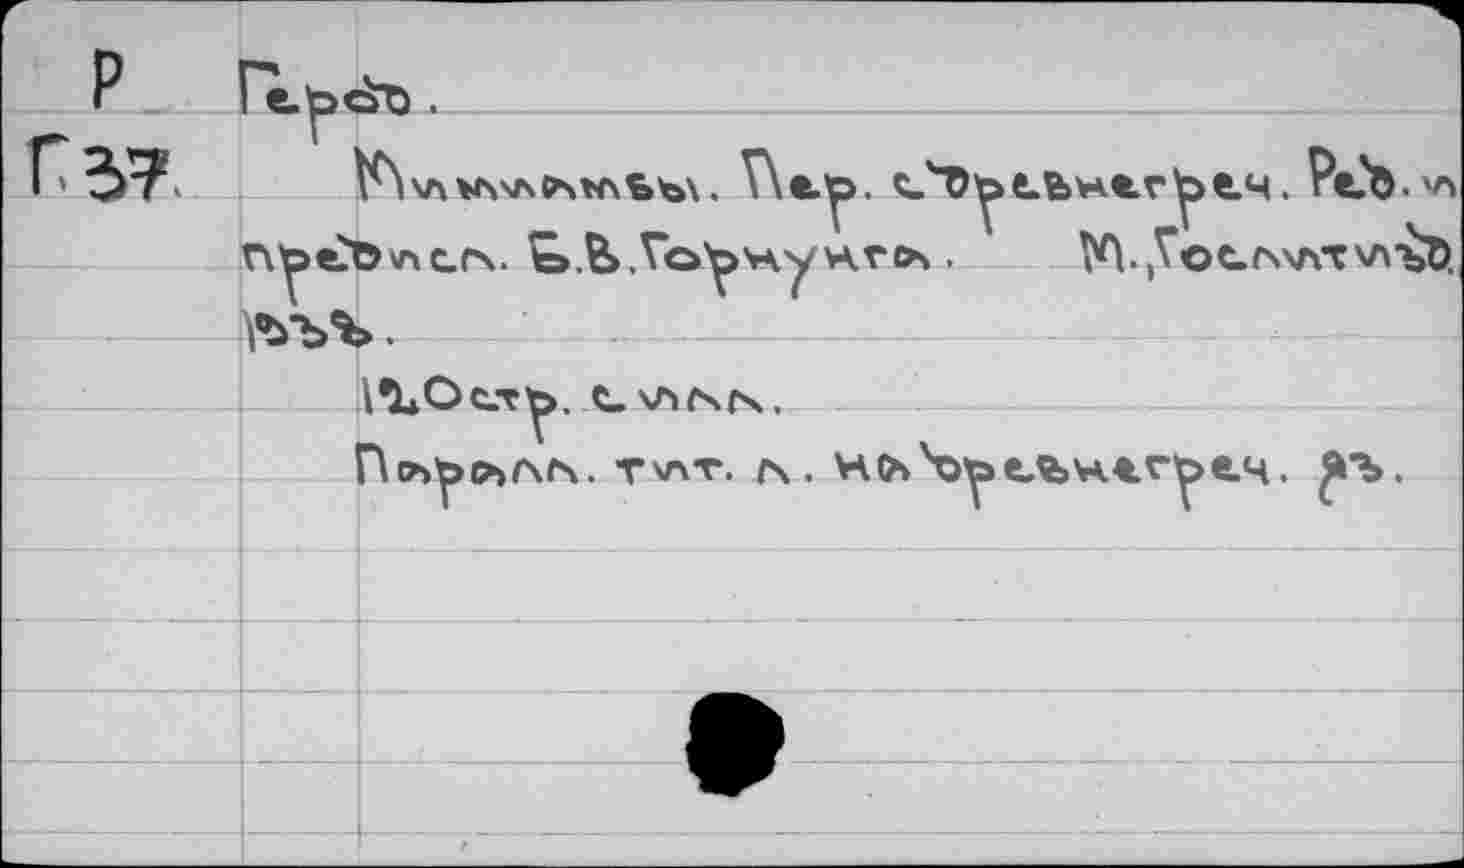 Р Герод.
Г37 Мимиамбы. Пер. с древнегреч. Ред. и
предисл. Б.В.Горнунга. М.,Гослитизд,
1938.
120стр. с илл.
Паралл. тит. л. на древнегреч. яз.